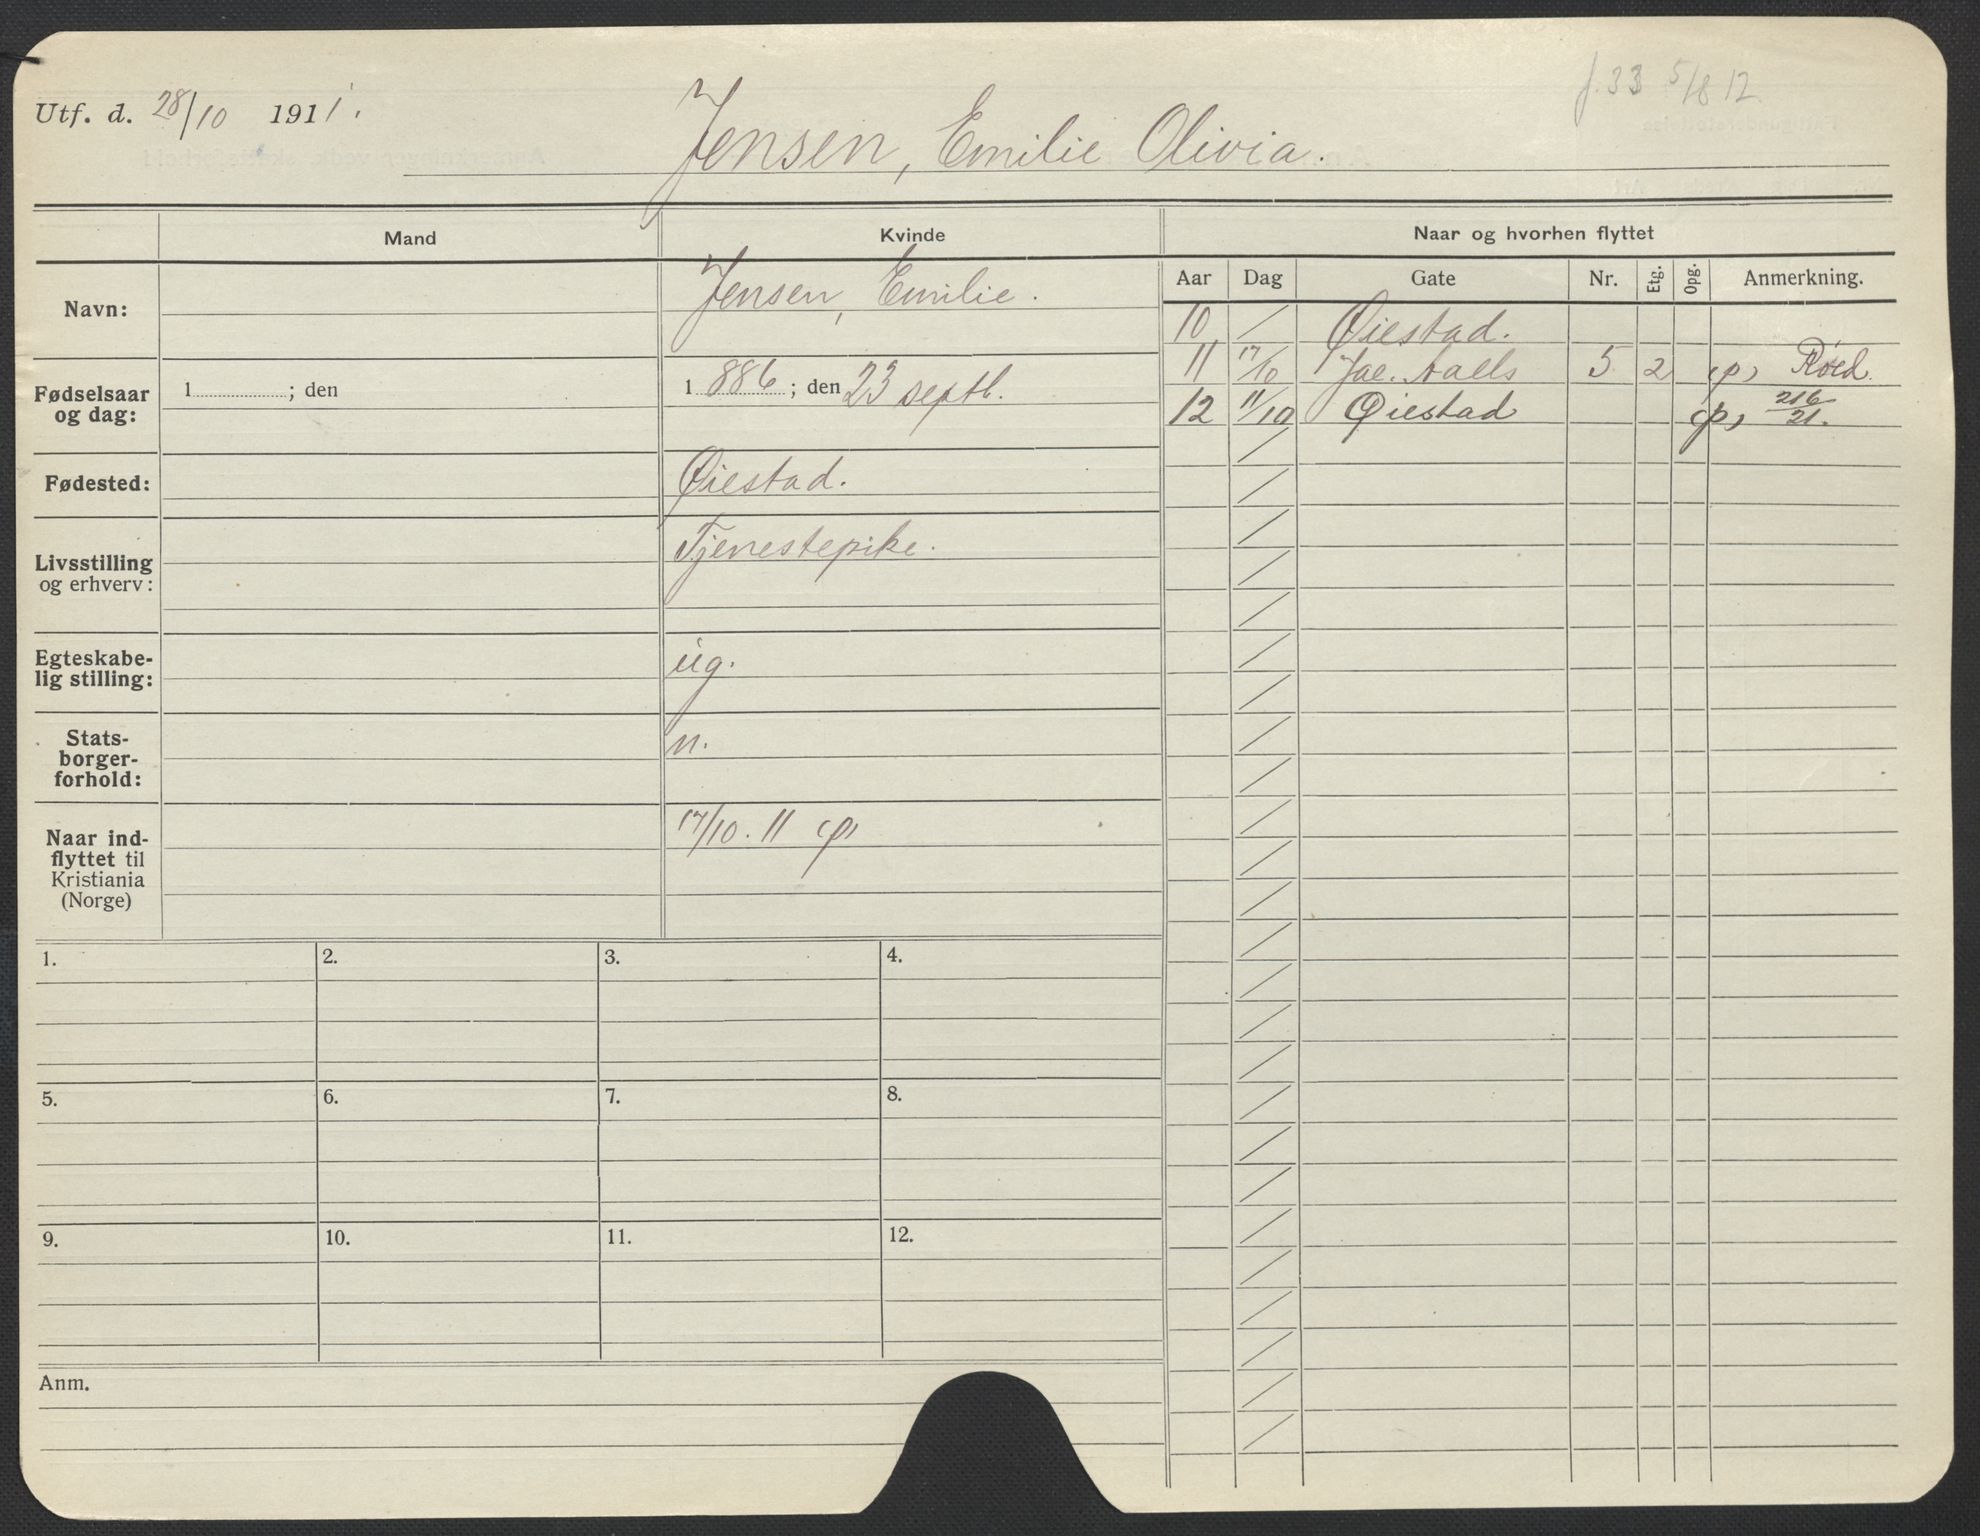 Utf. d. 28/10 1911.
Jensen, Emilie Olivia.
J. 33 5/8 12
Mand
Kvinde
Naar og hvorhen flyttet
Aar Dag Gate Nr. Etg. Opg. Anmerkning.
Navn:
Jensen, Emilie.
Fødselsaar og dag:
1 ; den
1 886 ; den 23 septb.
Fødested:
Øiestad.
Livsstilling og erhverv:
Tjenestepike.
Egteskabe-
lig stilling:
ug.
Stats-
borger-
forhold:
n.
Naar ind-
flyttet til
Kristiania
(Norge)
17/10. 11 (p)
10 / Øiestad.
11 17/10 Jac. Aalls 5 2 (p) Røed.
12 11/10 Øiestad (p) 216/21.
1. 2. 3. 4.
5. 6. 7. 8.
9. 10. 11. 12.
Anm.